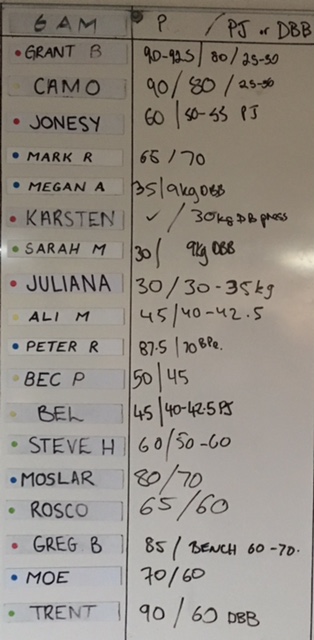 6 AM P / PJ or DBB
GRANT B 90-92.5 / 80 / 25-30
CAMO 90 / 80 / 25-30
JONESY 60 | 50-55 PJ
MARK R 65 / 70
MEGAN A 35 | 9kg DBB
KARSTEN ✓ / 30kg DB press
SARAH M 30 | 9kg DBB
JULIANA 30 / 30-35kg
ALI M 45 | 40-42.5
PETER R 87.5 | 70
BEC P 50 | 45
BEL 45 | 40-42.5 PJ
STEVE H 60 / 50-60
MOSLAR 80 / 70
ROSCO 65 / 60
GREG B 85 / BENCH 60-70.
MOE 70 / 60
TRENT 90 / 60 DBB